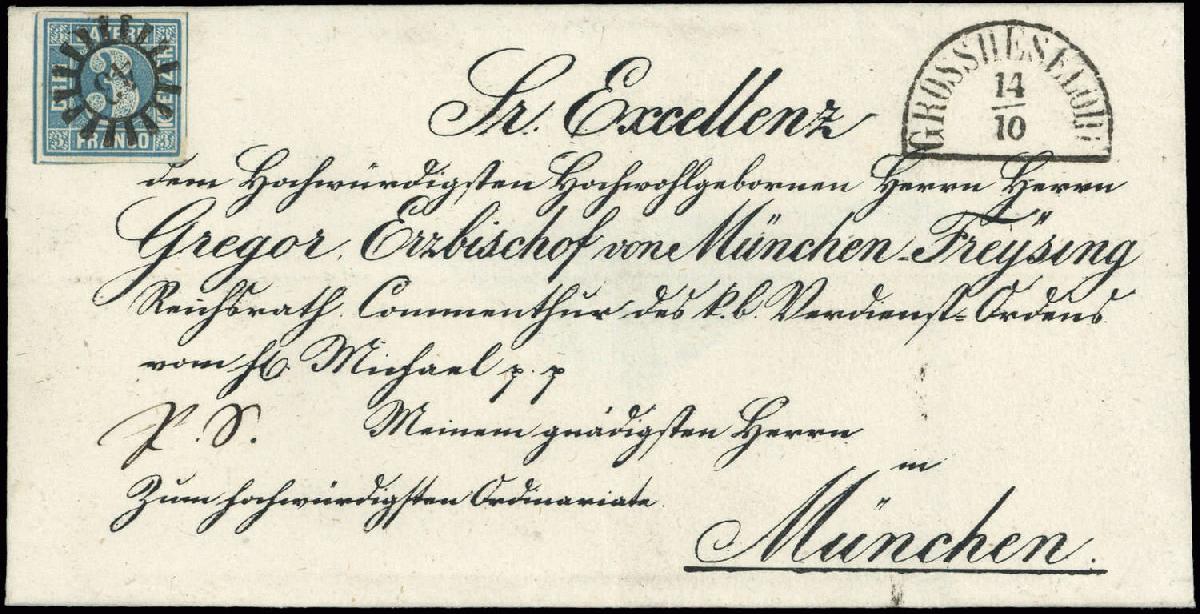 BAYERN
3
FRANCO
GROSSHESELOH
14
10
Sr. Excellenz
dem Hochwürdigsten Hochwohlgebornen Herrn Herrn
Gregor, Erzbischof von München-Freÿsing
Reichsrath, Commenthur des k. b. Verdienst-Ordens
vom hl. Michael p. p
P. S. Meinem gnädigsten Herrn
Zum hochwürdigsten Ordinariate
in
München.